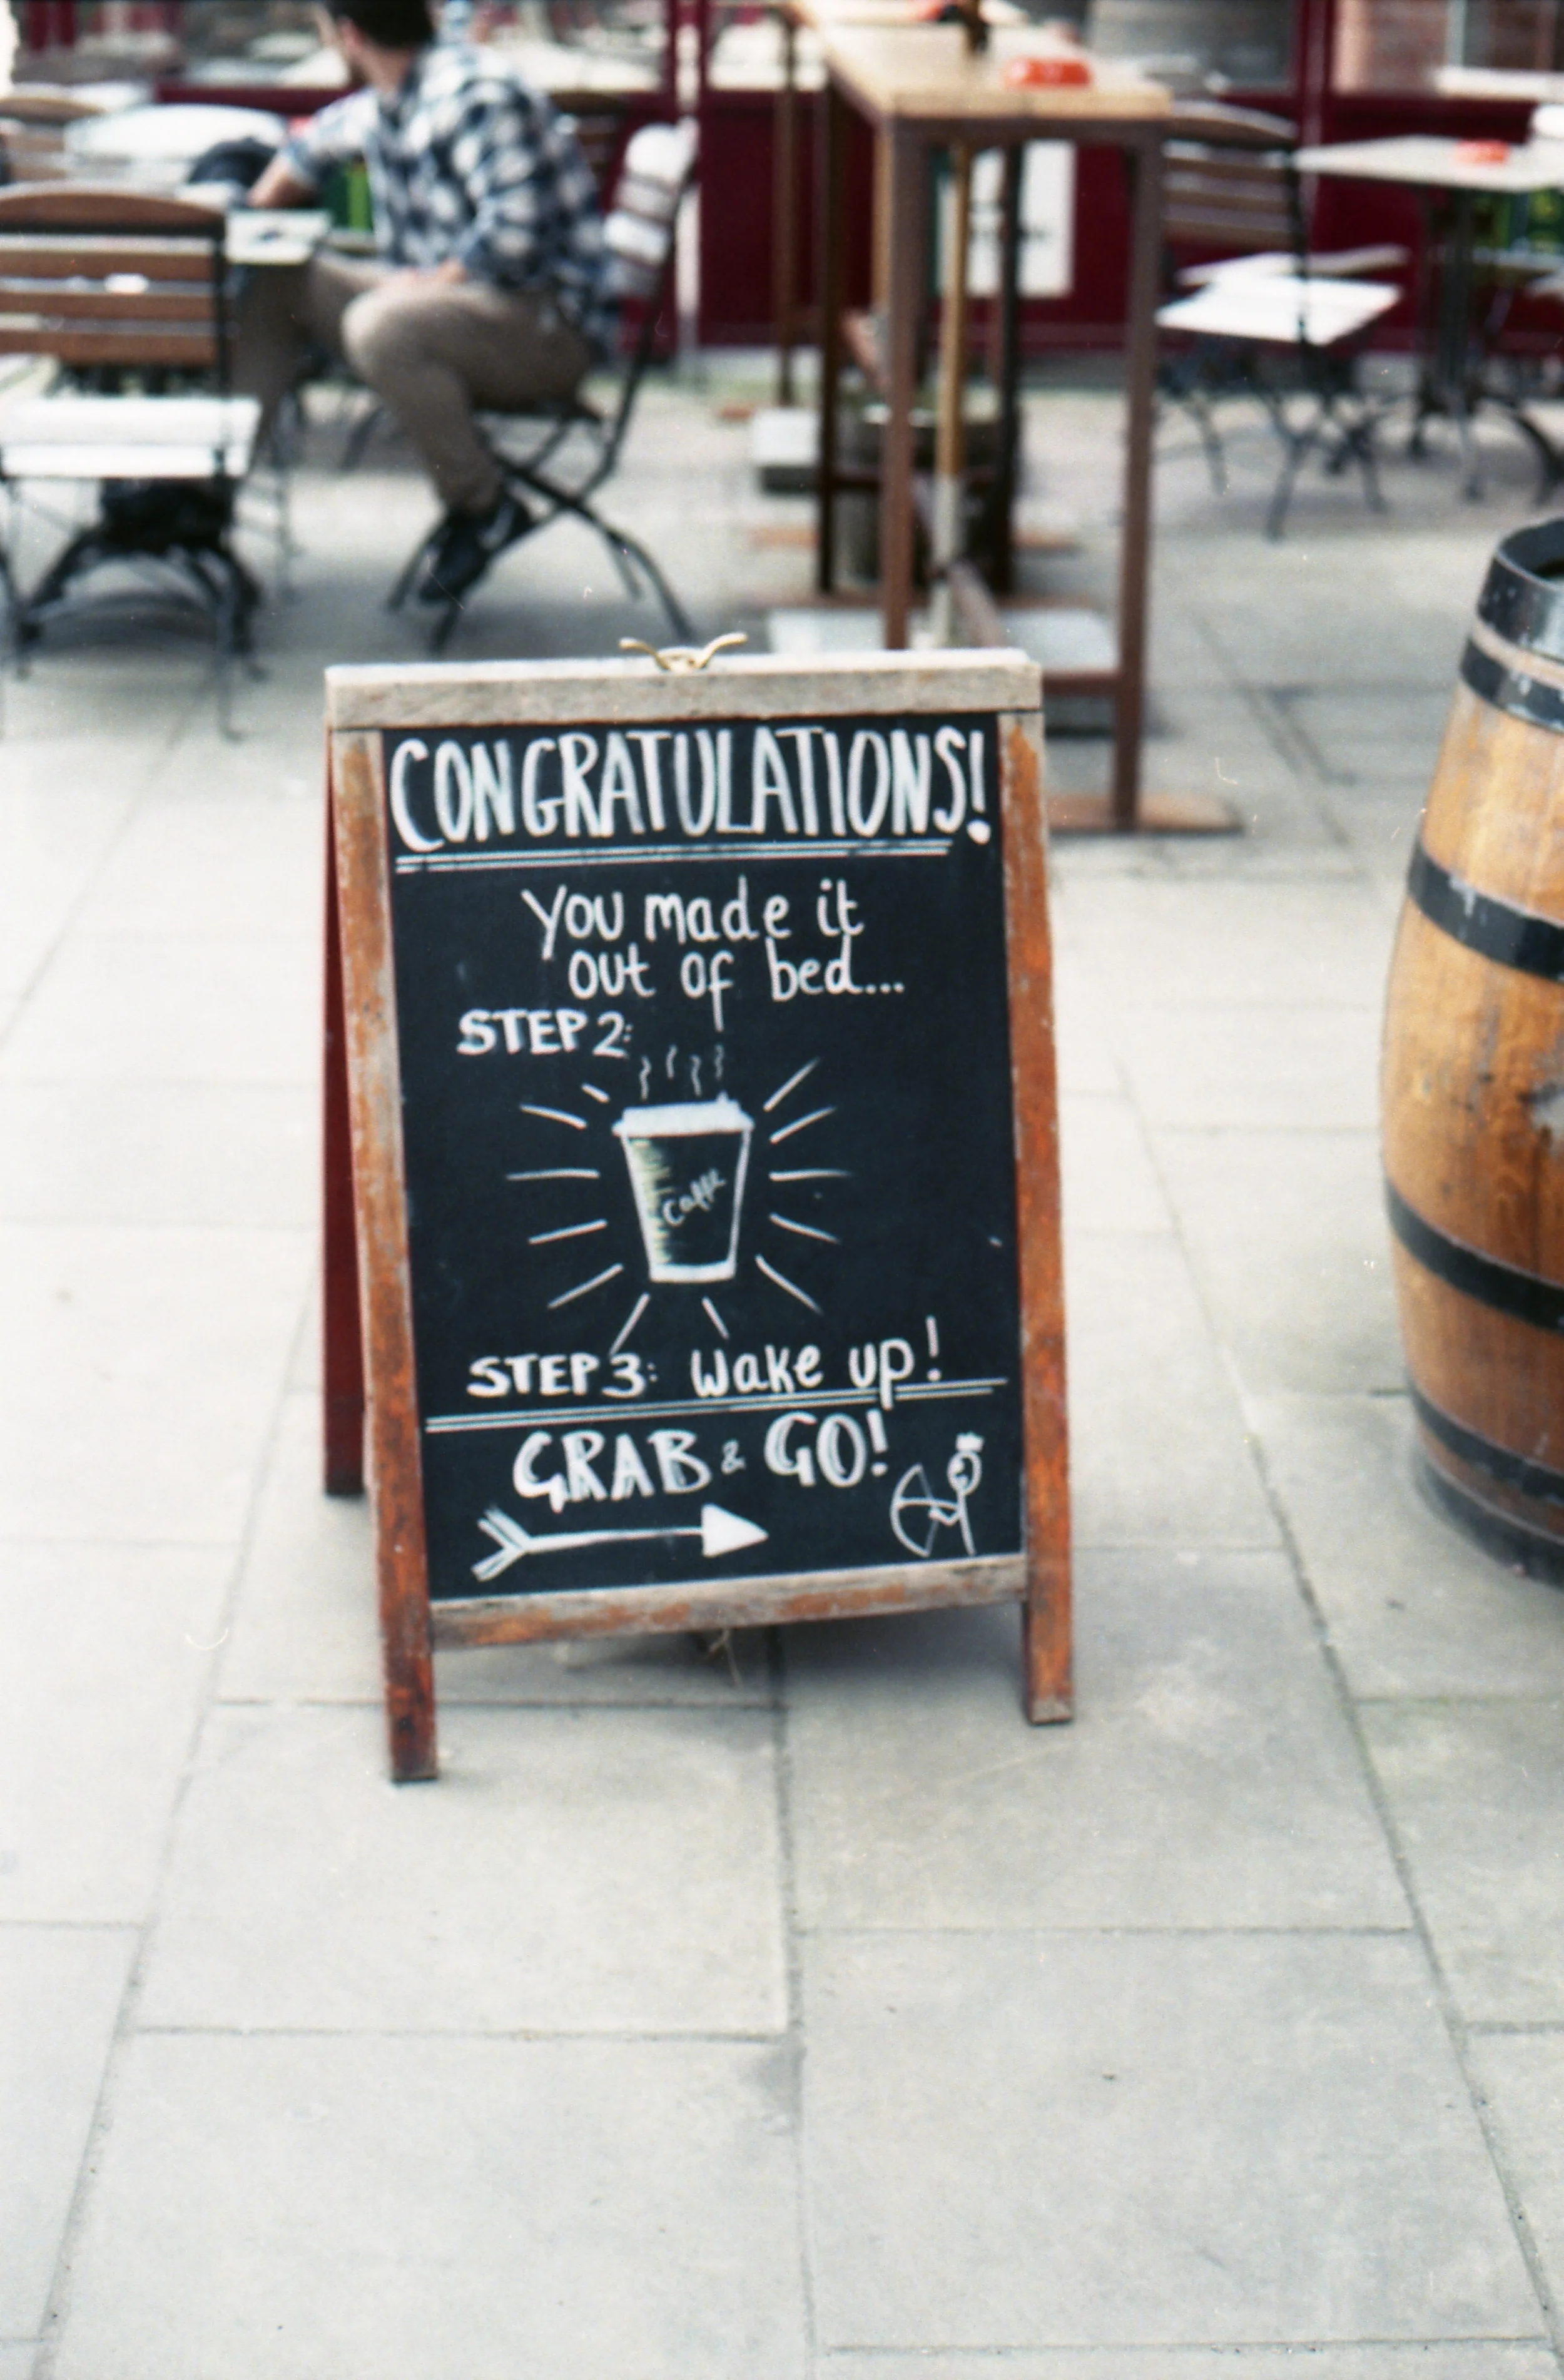 CONGRATULATIONS!
You made it
out of bed...
STEP 2:
Caffe
STEP 3: Wake up!
GRAB & GO!